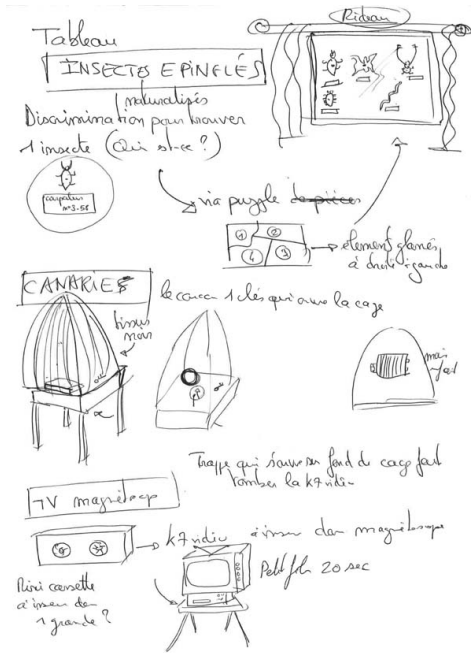 Tableau
Rideau
INSECTES EPINGLÉS
naturalisés
Discrimination pour trouver
1 insecte (Qui est-ce ?)
n°3-58
via puzzle de pièces
1
2
4
3
élément glanés
à droite à gauche
CANARIES
1 clés qui ouvre la cage
tissus
noir
Trappe qui s'ouvre au fond de cage fait
tomber la k7 vidéo
TV magnétoscop
k7 vidéo à insérer dans magnétoscope
Petit film 20 sec
Mini cassette
à insérer dans
1 grande ?